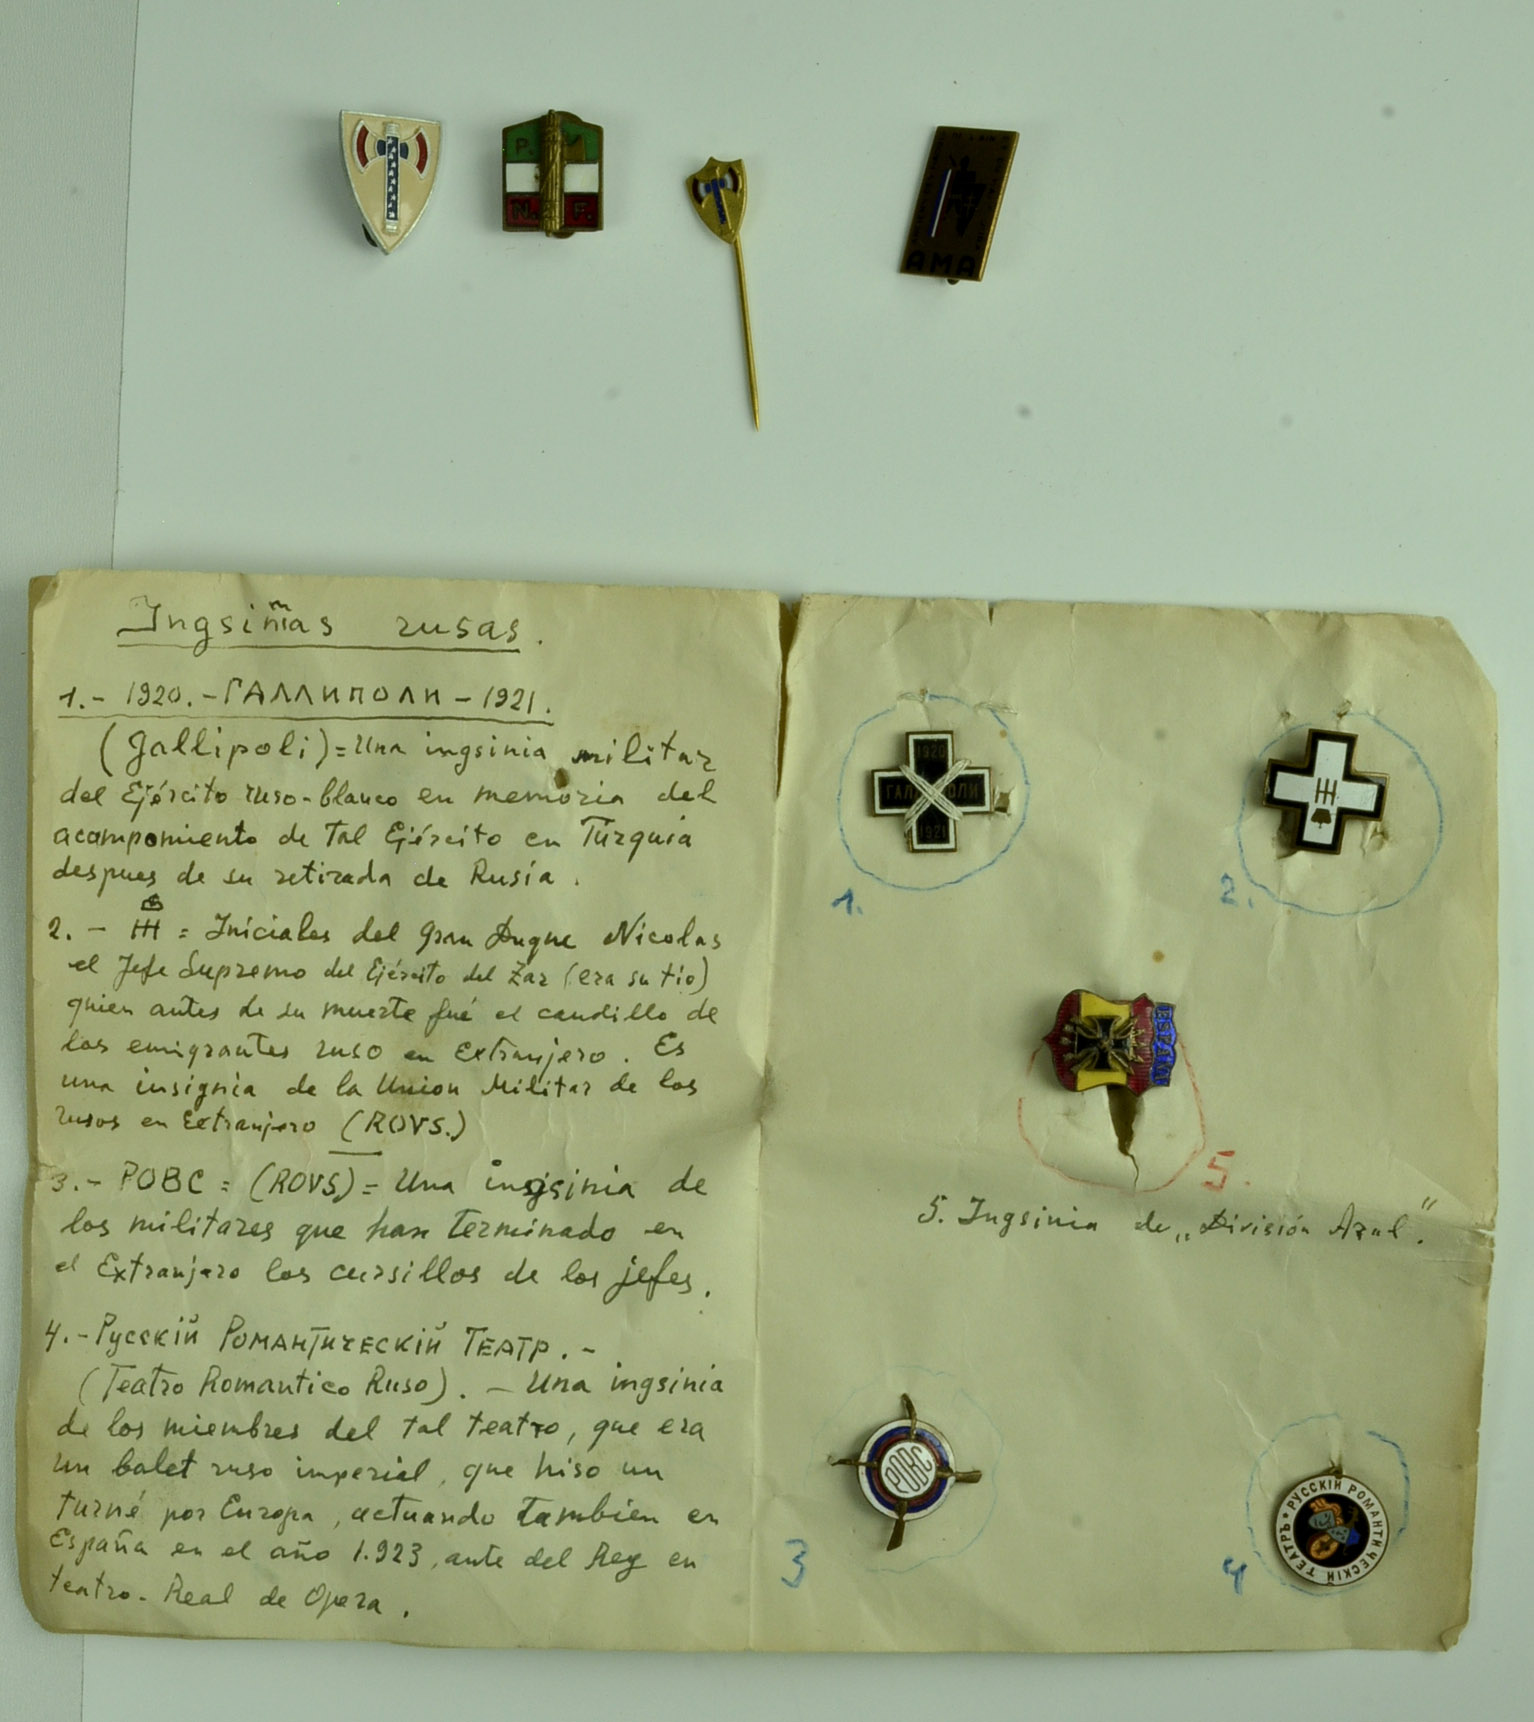 P.
N. F.
AMA
Ingsiñias rusas.
1.- 1920.-ГАЛЛИПОЛИ-1921.
(Gallipoli)=Una ingsinia militar
del Ejército ruso-blanco en memoria del
acampomiento de tal Ejército en Turquia
despues de su retirada de Rusia.
2.- = Iniciales del Gran Duque Nicolas
el Jefe Supremo del Ejército del Zar (era su tio)
quien antes de su muerte fué el caudillo de
los emigrantes ruso en Extranjero. Es
una insignia de la Union Militar de los
rusos en Extranjero (ROVS.)
3.- РОВС = (ROVS)= Una ingsinia de
los militares que han terminado en
el Extranjero los cursillos de los jefes.
4.-Русскій Романтическій Театр.-
(Teatro Romantico Ruso). - Una ingsinia
de los miembres del tal teatro, que era
un balet ruso imperial, que hiso un
turné por Europa, actuando tambien en
España en el año 1.923, ante del Rey en
teatro-Real de Opera.
1920
ГАЛЛИПОЛИ
1921
1.
2.
ESPAÑA
5.
5. Ingsinia de „División Azul".
РОВС
3
РУССКІЙ РОМАНТИЧЕСКІЙ ТЕАТРЪ
4